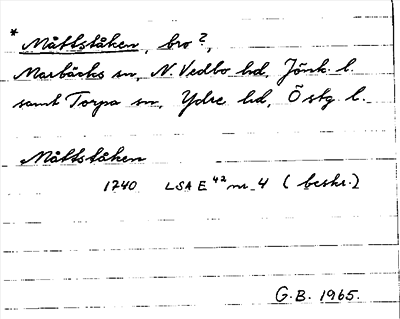 * Måttståken, bro?,
Marbäcks sn, N. Vedbo hd, Jönk. l.
samt Torpa sn, Ydre hd, Östg. l.
Måttståken
1740 LSA E 42 nr. 4 (beskr.)
G.B. 1965.